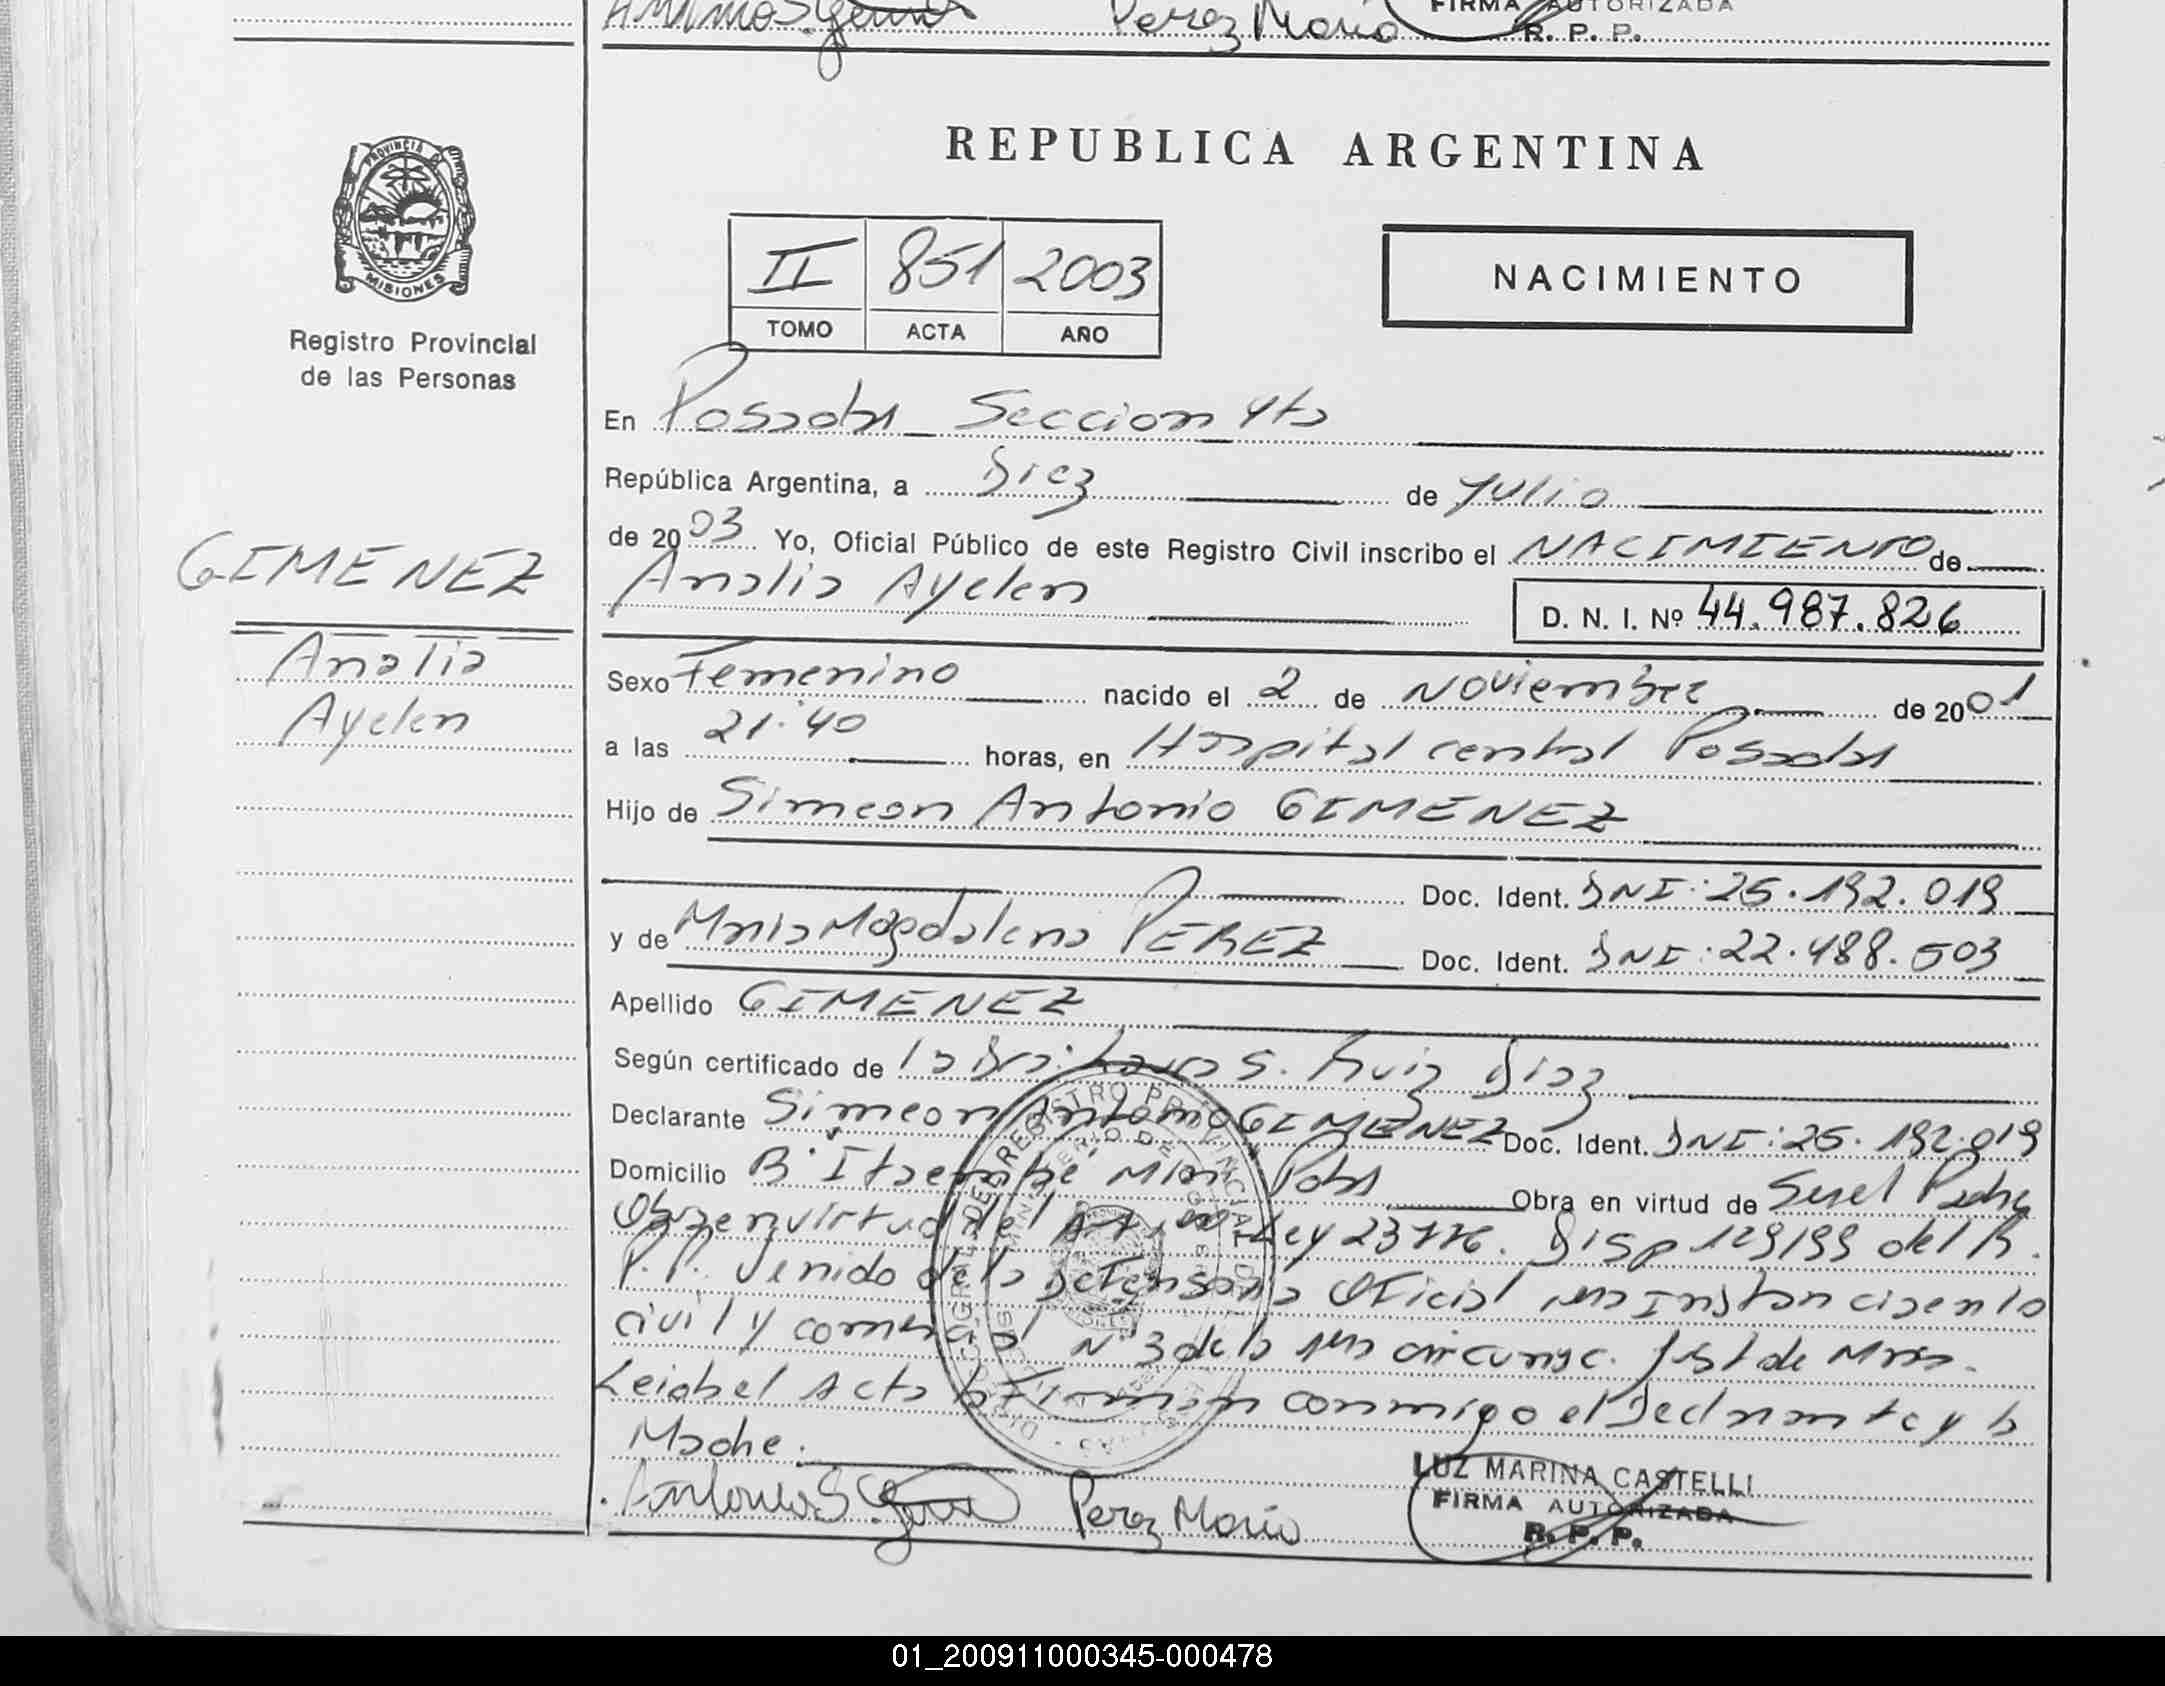 Perez Maria
FIRMA AUTORIZADA
R. P. P.
PROVINCIA DE
MISIONES
Registro Provincial
de las Personas
REPUBLICA ARGENTINA
II 851 2003
TOMO ACTA AÑO
NACIMIENTO
En Posadas Seccion 4ta
República Argentina, a Diez de Julio
de 2003 Yo, Oficial Público de este Registro Civil inscribo el NACIMIENTO de
Analia Ayelen
D. N. I. Nº 44.987.826
GIMENEZ
Analia
Ayelen
Sexo Femenino nacido el 2 de Noviembre de 2001
a las 21:40 horas, en Hospital central Posadas
Hijo de Simeon Antonio GIMENEZ
Doc. Ident. DNI: 25.192.019
y de Maria Magdalena PEREZ Doc. Ident. DNI: 22.488.503
Apellido GIMENEZ
Según certificado de la Dra: Laura S. Ruiz Diaz
Declarante Simeon Antonio GIMENEZ Doc. Ident. DNI: 25.192.019
Domicilio Bº Itaembé Mini Pdas Obra en virtud de Ser el Padre
Obra en virtud del Art. Ley 23776. Disp 129/99 del R.
P. P. Venido de la Defensoria Oficial 1ra Instancia en lo
civil y comercial Nº 3 de la 1ra circunsc. Jud de Mnes.
Leida el Acta la Firman conmigo el Declarante y la
Madre.
Antonio S Perez Maria
LUZ MARINA CASTELLI
FIRMA AUTORIZADA
R. P. P.
01_200911000345-000478